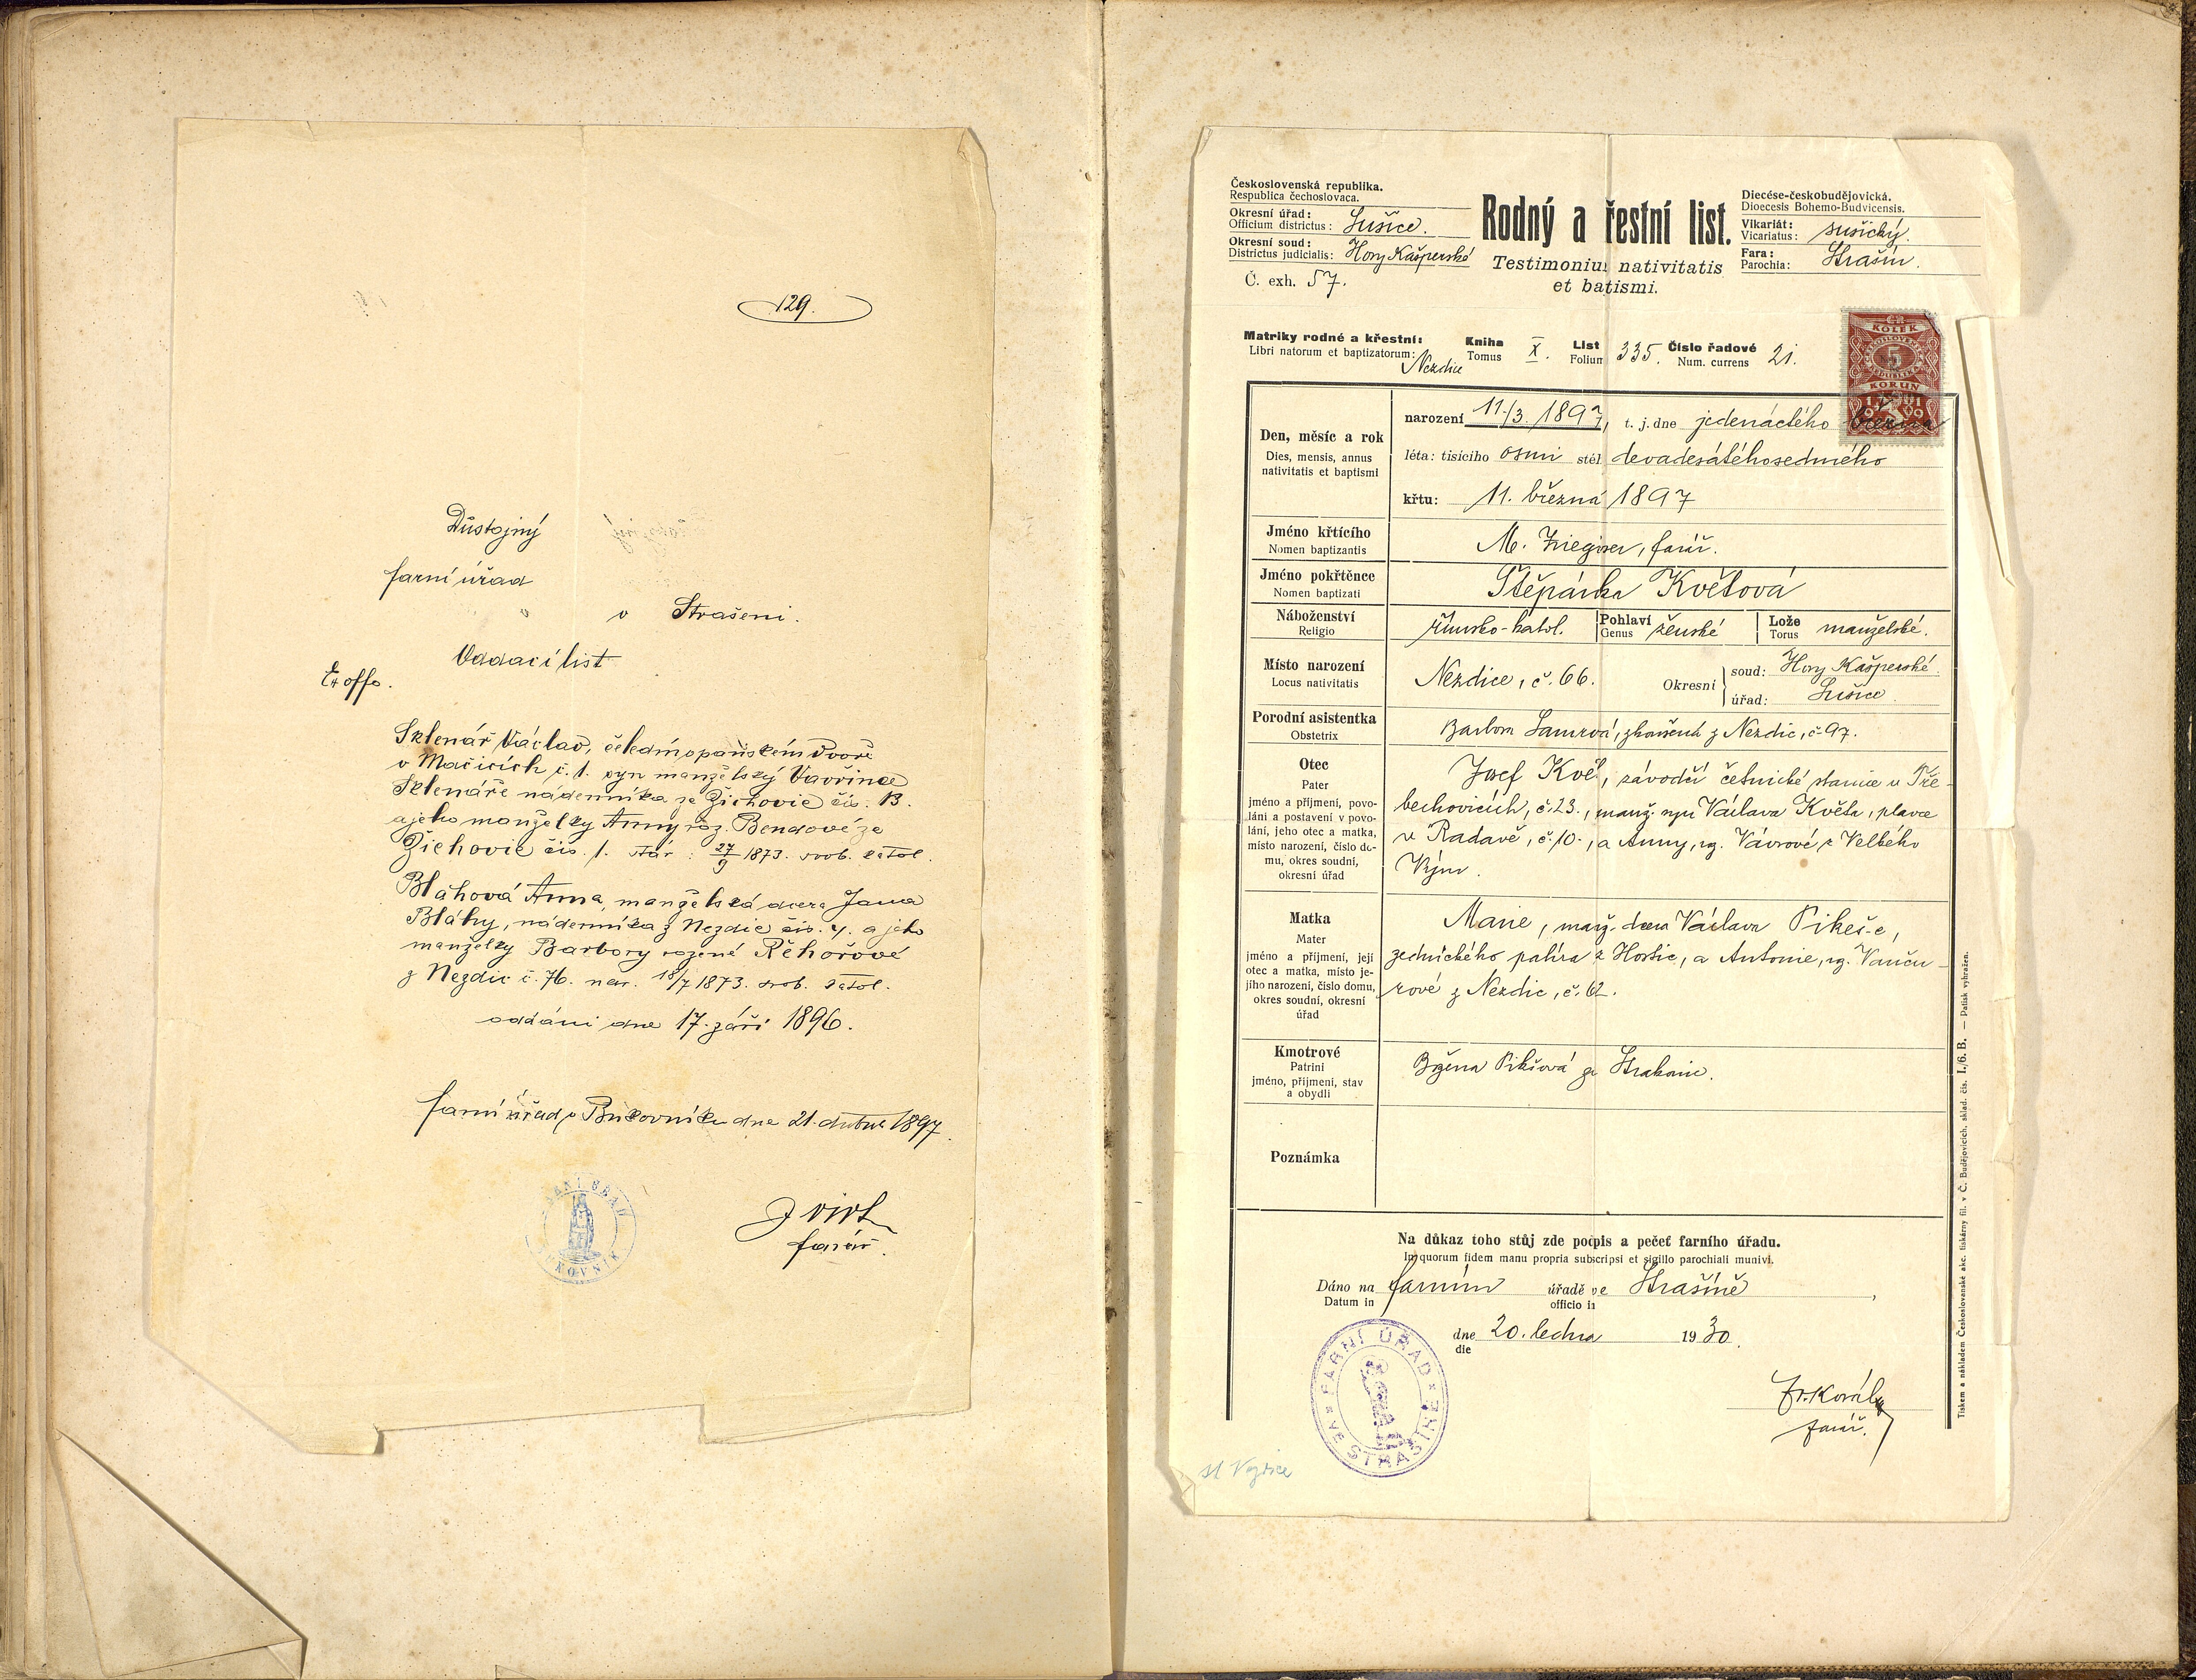 129.
Důstojný
farní úřad
v Strašeni.
Oddací list
Ex offo.
Sklenář Václav, čeledín v panském dvoře
v Mačicích č. 1. syn manželský Vavřince
Sklenáře nádenníka ze Žichovic čís. 13.
a jeho manželky Anny roz. Bendové ze
Žichovic čís. 1. nar: 27/9 1873. svob. katol.
Bláhová Anna, manželská dcera Jana
Bláhy, nádenníka z Nezdic čís. 4. a jeho
manželky Barbory rozené Řehořové
z Nezdic č. 76. nar. 18/7 1873. svob. katol.
oddáni dne 17. září 1896.
farní úřad v Bukovníku dne 21. dubna 1897.
farář.
Československá republika.
Respublica čechoslovaca.
Okresní úřad:
Officium districtus: Sušice.
Okresní soud:
Districtus judicialis: Hory Kašperské
Č. exh. 57.
Rodný a řestní list.
Testimoniu nativitatis
et batismi.
Diecése-českobudějovická.
Dioecesis Bohemo-Budvicensis.
Vikariát:
Vicariatus: sušický.
Fara:
Parochia: Strašín.
KOLEK
5
KORUN
1919
Matriky rodné a křestní:
Libri natorum et baptizatorum: Nezdice
Kniha
Tomus X.
List
Folium 335.
Číslo řadové
Num. currens 21.
Den, měsíc a rok
Dies, mensis, annus
nativitatis et baptismi
narození 11./3. 1897, t. j. dne jedenáctého března
léta: tisícího osmi stél devadesátéhosedmého
křtu: 11. března 1897
Jméno křtícího
Nomen baptizantis
M. farář.
Jméno pokřtěnce
Nomen baptizati
Štěpánka Květová
Náboženství
Religio
římsko-katol.
Pohlaví
Genus ženské
Lože
Torus manželské.
Místo narození
Locus nativitatis
Nezdice, č. 66.
Okresní
soud: Hory Kašperské.
úřad: Sušice.
Porodní asistentka
Obstetrix
Barbora zkoušená z Nezdic, č. 97.
Otec
Pater
jméno a příjmení, povo-
lání a postavení v povo-
lání, jeho otec a matka,
místo narození, číslo do-
mu, okres soudní,
okresní úřad
Josef Květ, závodčí četnické stanice v Tře-
bechovicích, č. 23., manž. syn Václava Květa, plavce
v Radavě, č. 10., a Anny, roz. Vávrové z Velkého
Matka
Mater
jméno a příjmení, její
otec a matka, místo je-
jího narození, číslo domu,
okres soudní, okresní
úřad
Marie, manž. dcera Václava Pikeš-e,
zednického palíra z Horšic, a Antonie, roz. Vanču-
rové z Nezdic, č. 62.
Kmotrové
Patrini
jméno, příjmení, stav
a obydlí
Božena Pikšová ze Strakonic.
Poznámka
Na důkaz toho stůj zde podpis a pečeť farního úřadu.
In quorum fidem manu propria subscripsi et sigillo parochiali munivi.
Dáno na farním úřadě ve Strašíně,
Datum in officio in
dne 20. ledna 1930.
die
FARNÍ ÚŘAD
VE STRAŠÍNĚ
Fr. Kovář
farář.
Tiskem a nákladem Československé akc. tiskárny fil. v Č. Budějovicích. sklad. čís. I./6. B. — Patisk vyhražen.